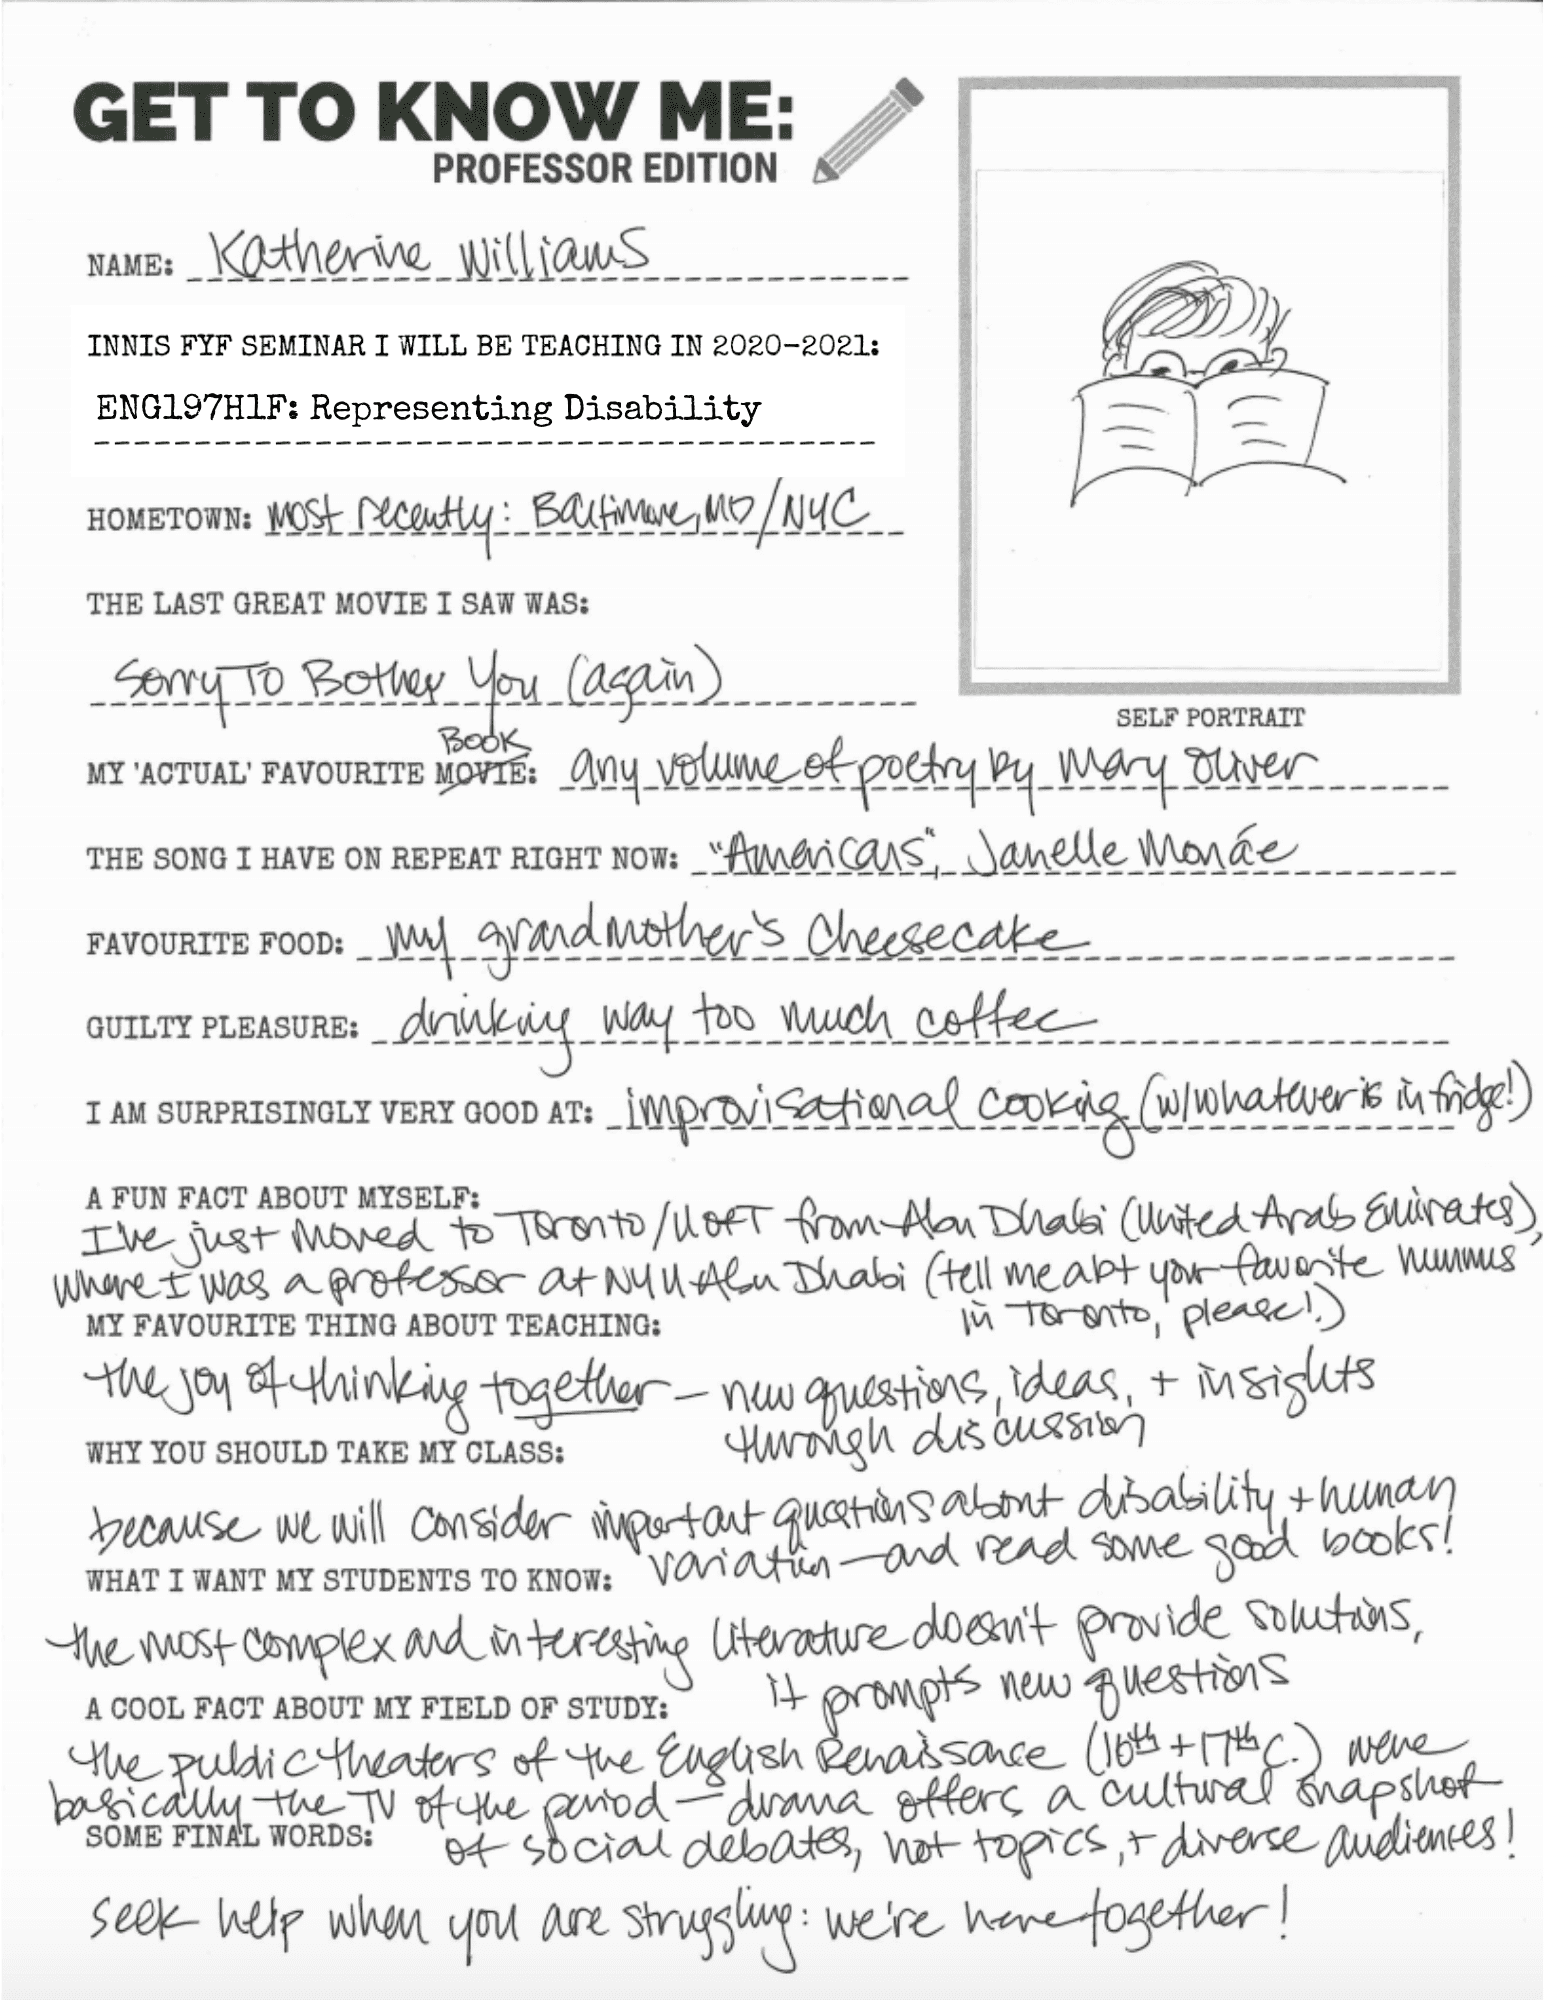 GET TO KNOW ME:
PROFESSOR EDITION
NAME: Katherine Williams
INNIS FYF SEMINAR I WILL BE TEACHING IN 2020-2021:
ENG197H1F: Representing Disability
HOMETOWN: most recently: Baltimore, MD/NYC
THE LAST GREAT MOVIE I SAW WAS:
Sorry To Bother You (again)
SELF PORTRAIT
BOOK
MY 'ACTUAL' FAVOURITE MOVIE: any volume of poetry by Mary Oliver
THE SONG I HAVE ON REPEAT RIGHT NOW: "Americans", Janelle Monáe
FAVOURITE FOOD: my grandmother's cheesecake
GUILTY PLEASURE: drinking way too much coffee
I AM SURPRISINGLY VERY GOOD AT: improvisational cooking (w/whatever is in fridge!)
A FUN FACT ABOUT MYSELF:
I've just moved to Toronto/UOFT from Abu Dhabi (United Arab Emirates),
where I was a professor at NYU Abu Dhabi (tell me abt your favorite hummus
in Toronto, please!)
MY FAVOURITE THING ABOUT TEACHING:
the joy of thinking together – new questions, ideas, + insights
through discussion
WHY YOU SHOULD TAKE MY CLASS:
because we will consider important questions about disability + human
variation – and read some good books!
WHAT I WANT MY STUDENTS TO KNOW:
the most complex and interesting literature doesn't provide solutions,
it prompts new questions
A COOL FACT ABOUT MY FIELD OF STUDY:
the public theaters of the English Renaissance (16th + 17th C.) were
basically the TV of the period – drama offers a cultural snapshot
of social debates, hot topics, + diverse audiences!
SOME FINAL WORDS:
seek help when you are struggling: we're here together!